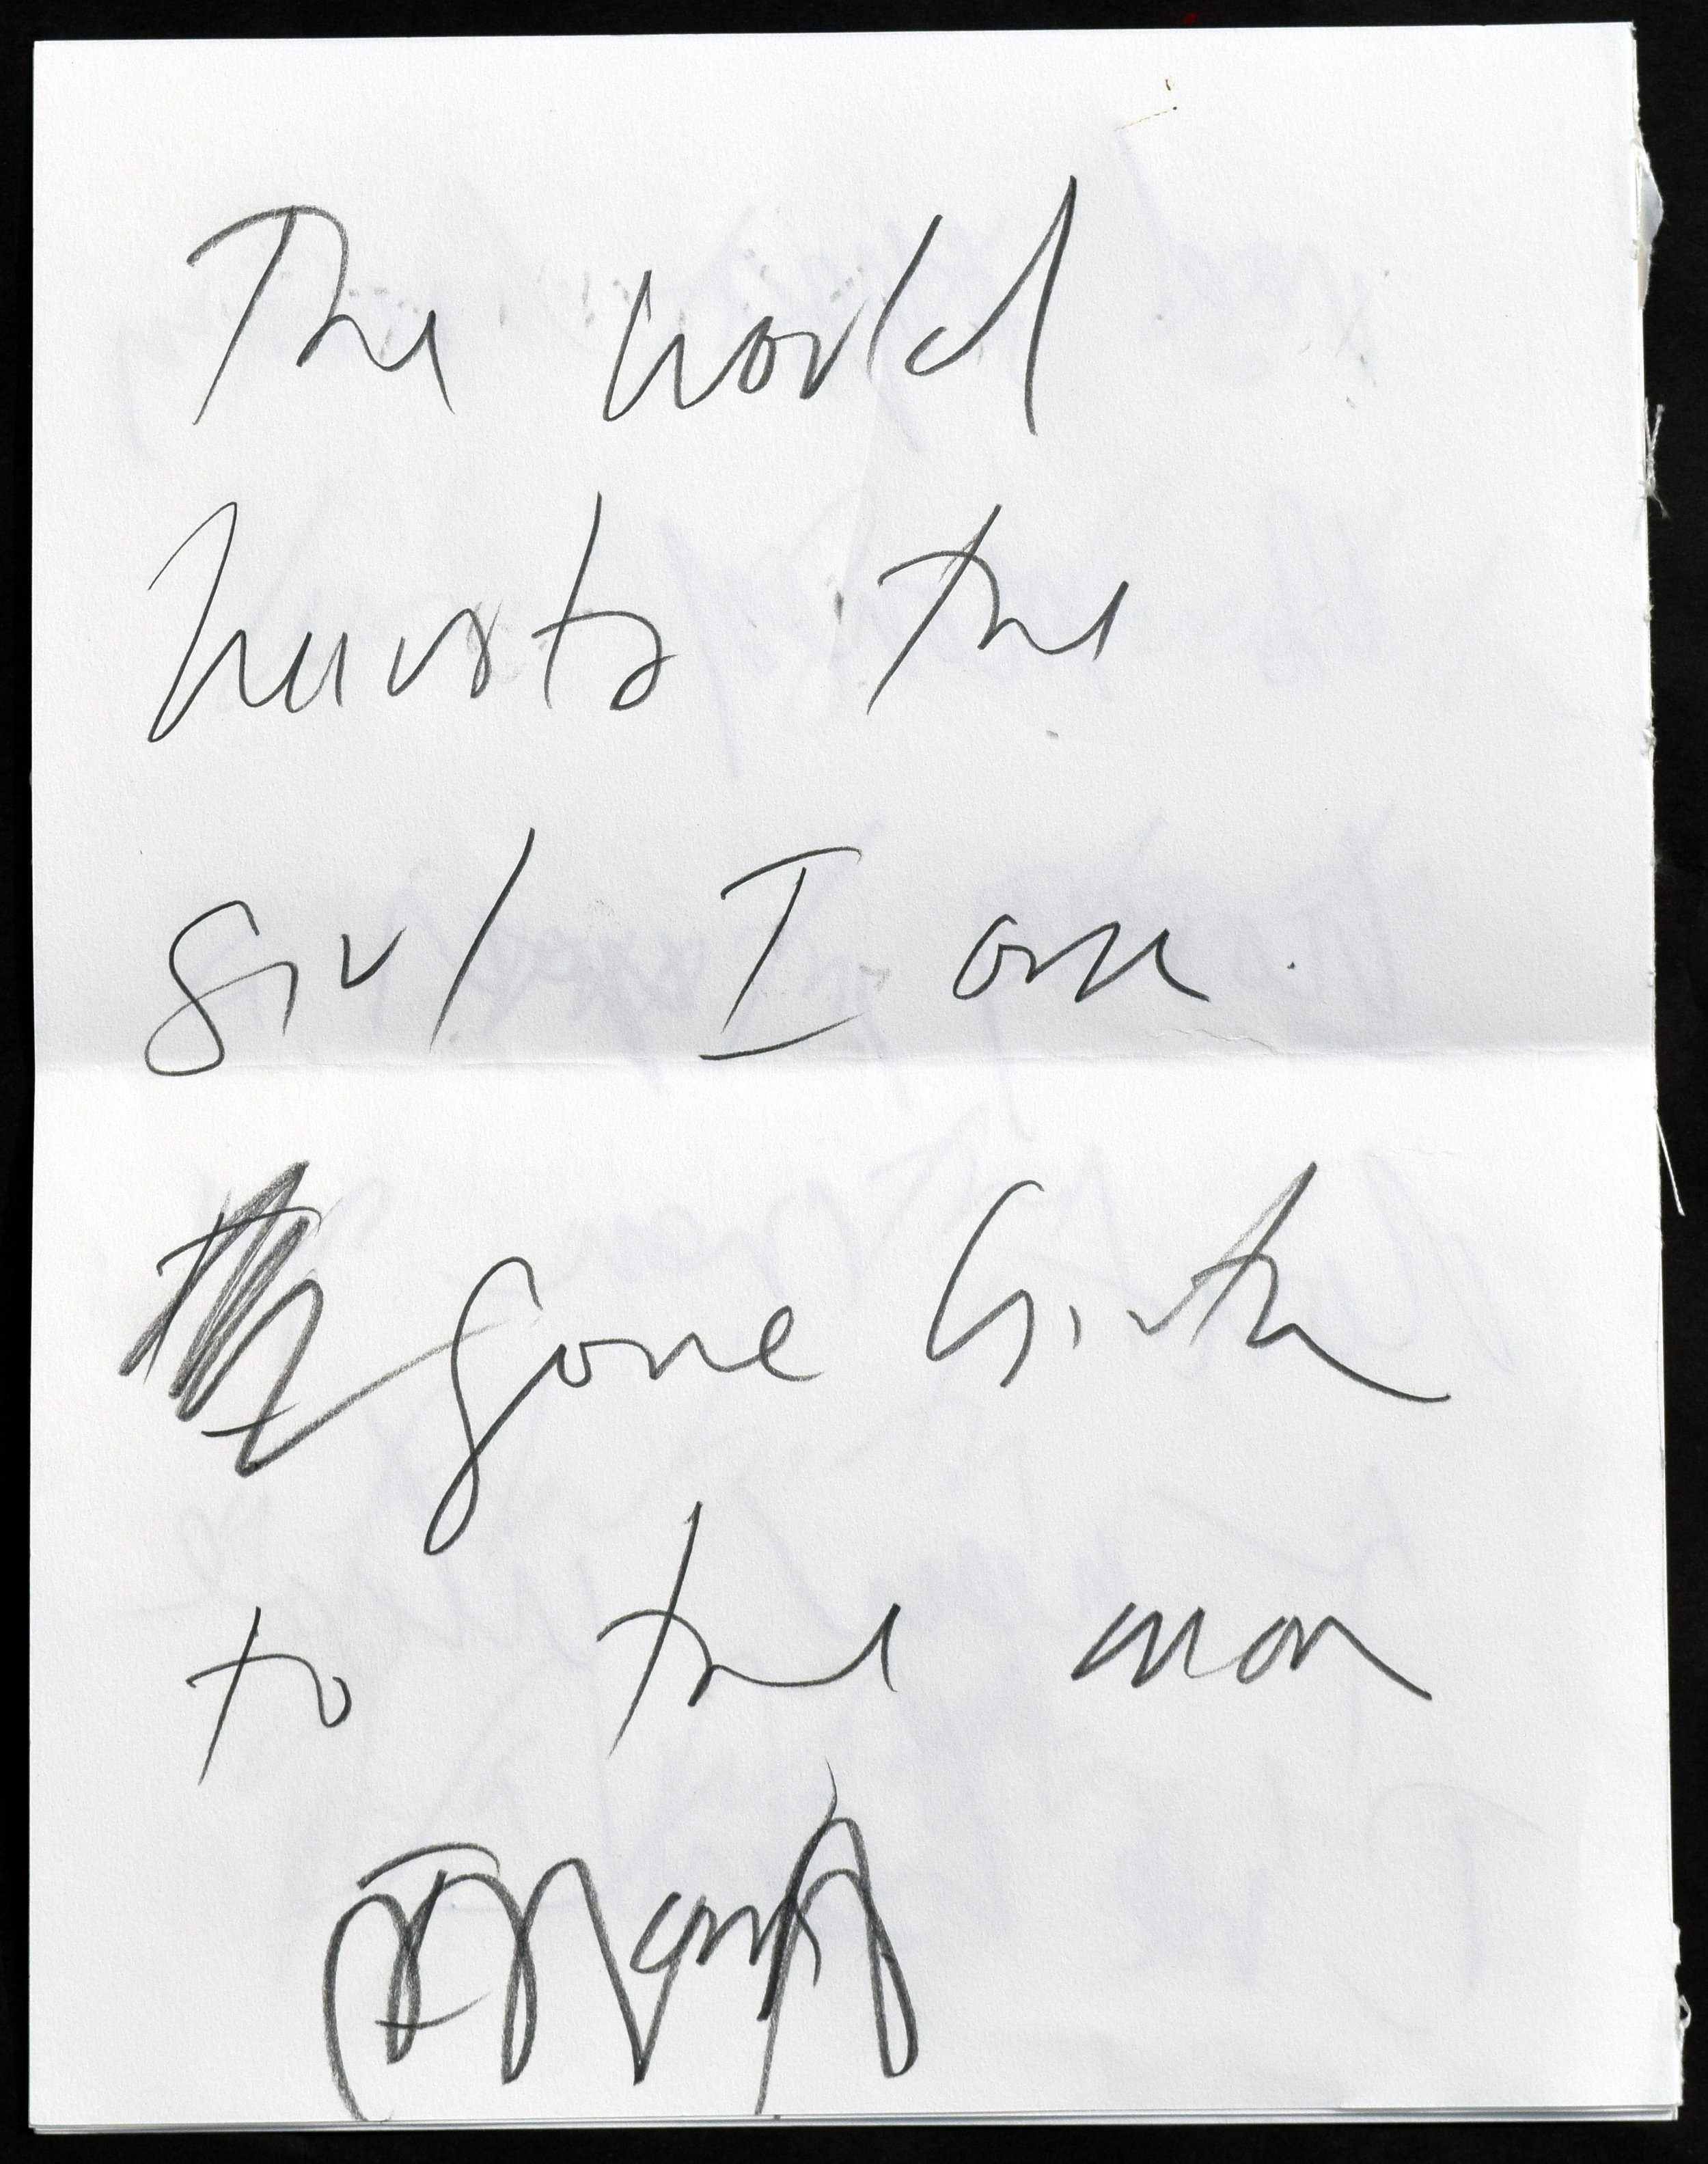 The world
hurts the
girl I am.
gave birth
to the man